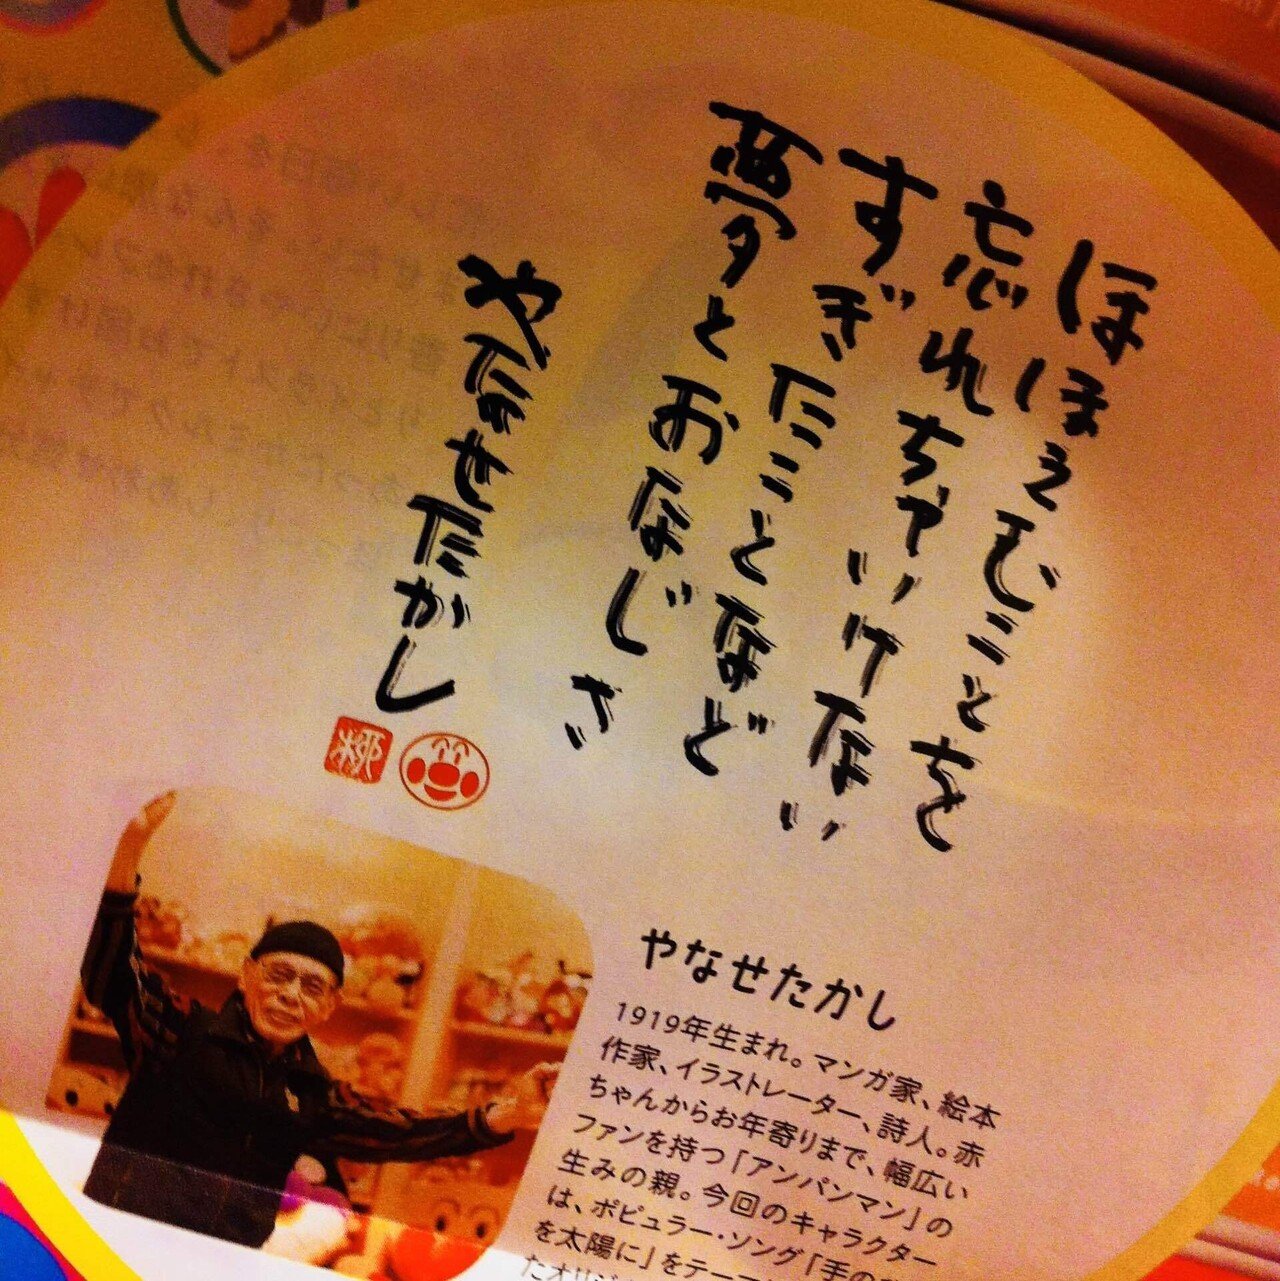 ほほえむことを
忘れちゃいけない
すぎたことなど
夢とおなじさ
やなせたかし
やなせたかし
1919年生まれ。マンガ家、絵本
作家、イラストレーター、詩人。赤
ちゃんからお年寄りまで、幅広い
ファンを持つ「アンパンマン」の
生みの親。今回のキャラクター
は、ポピュラー・ソング「手の
を太陽に」をテー
たオリジ